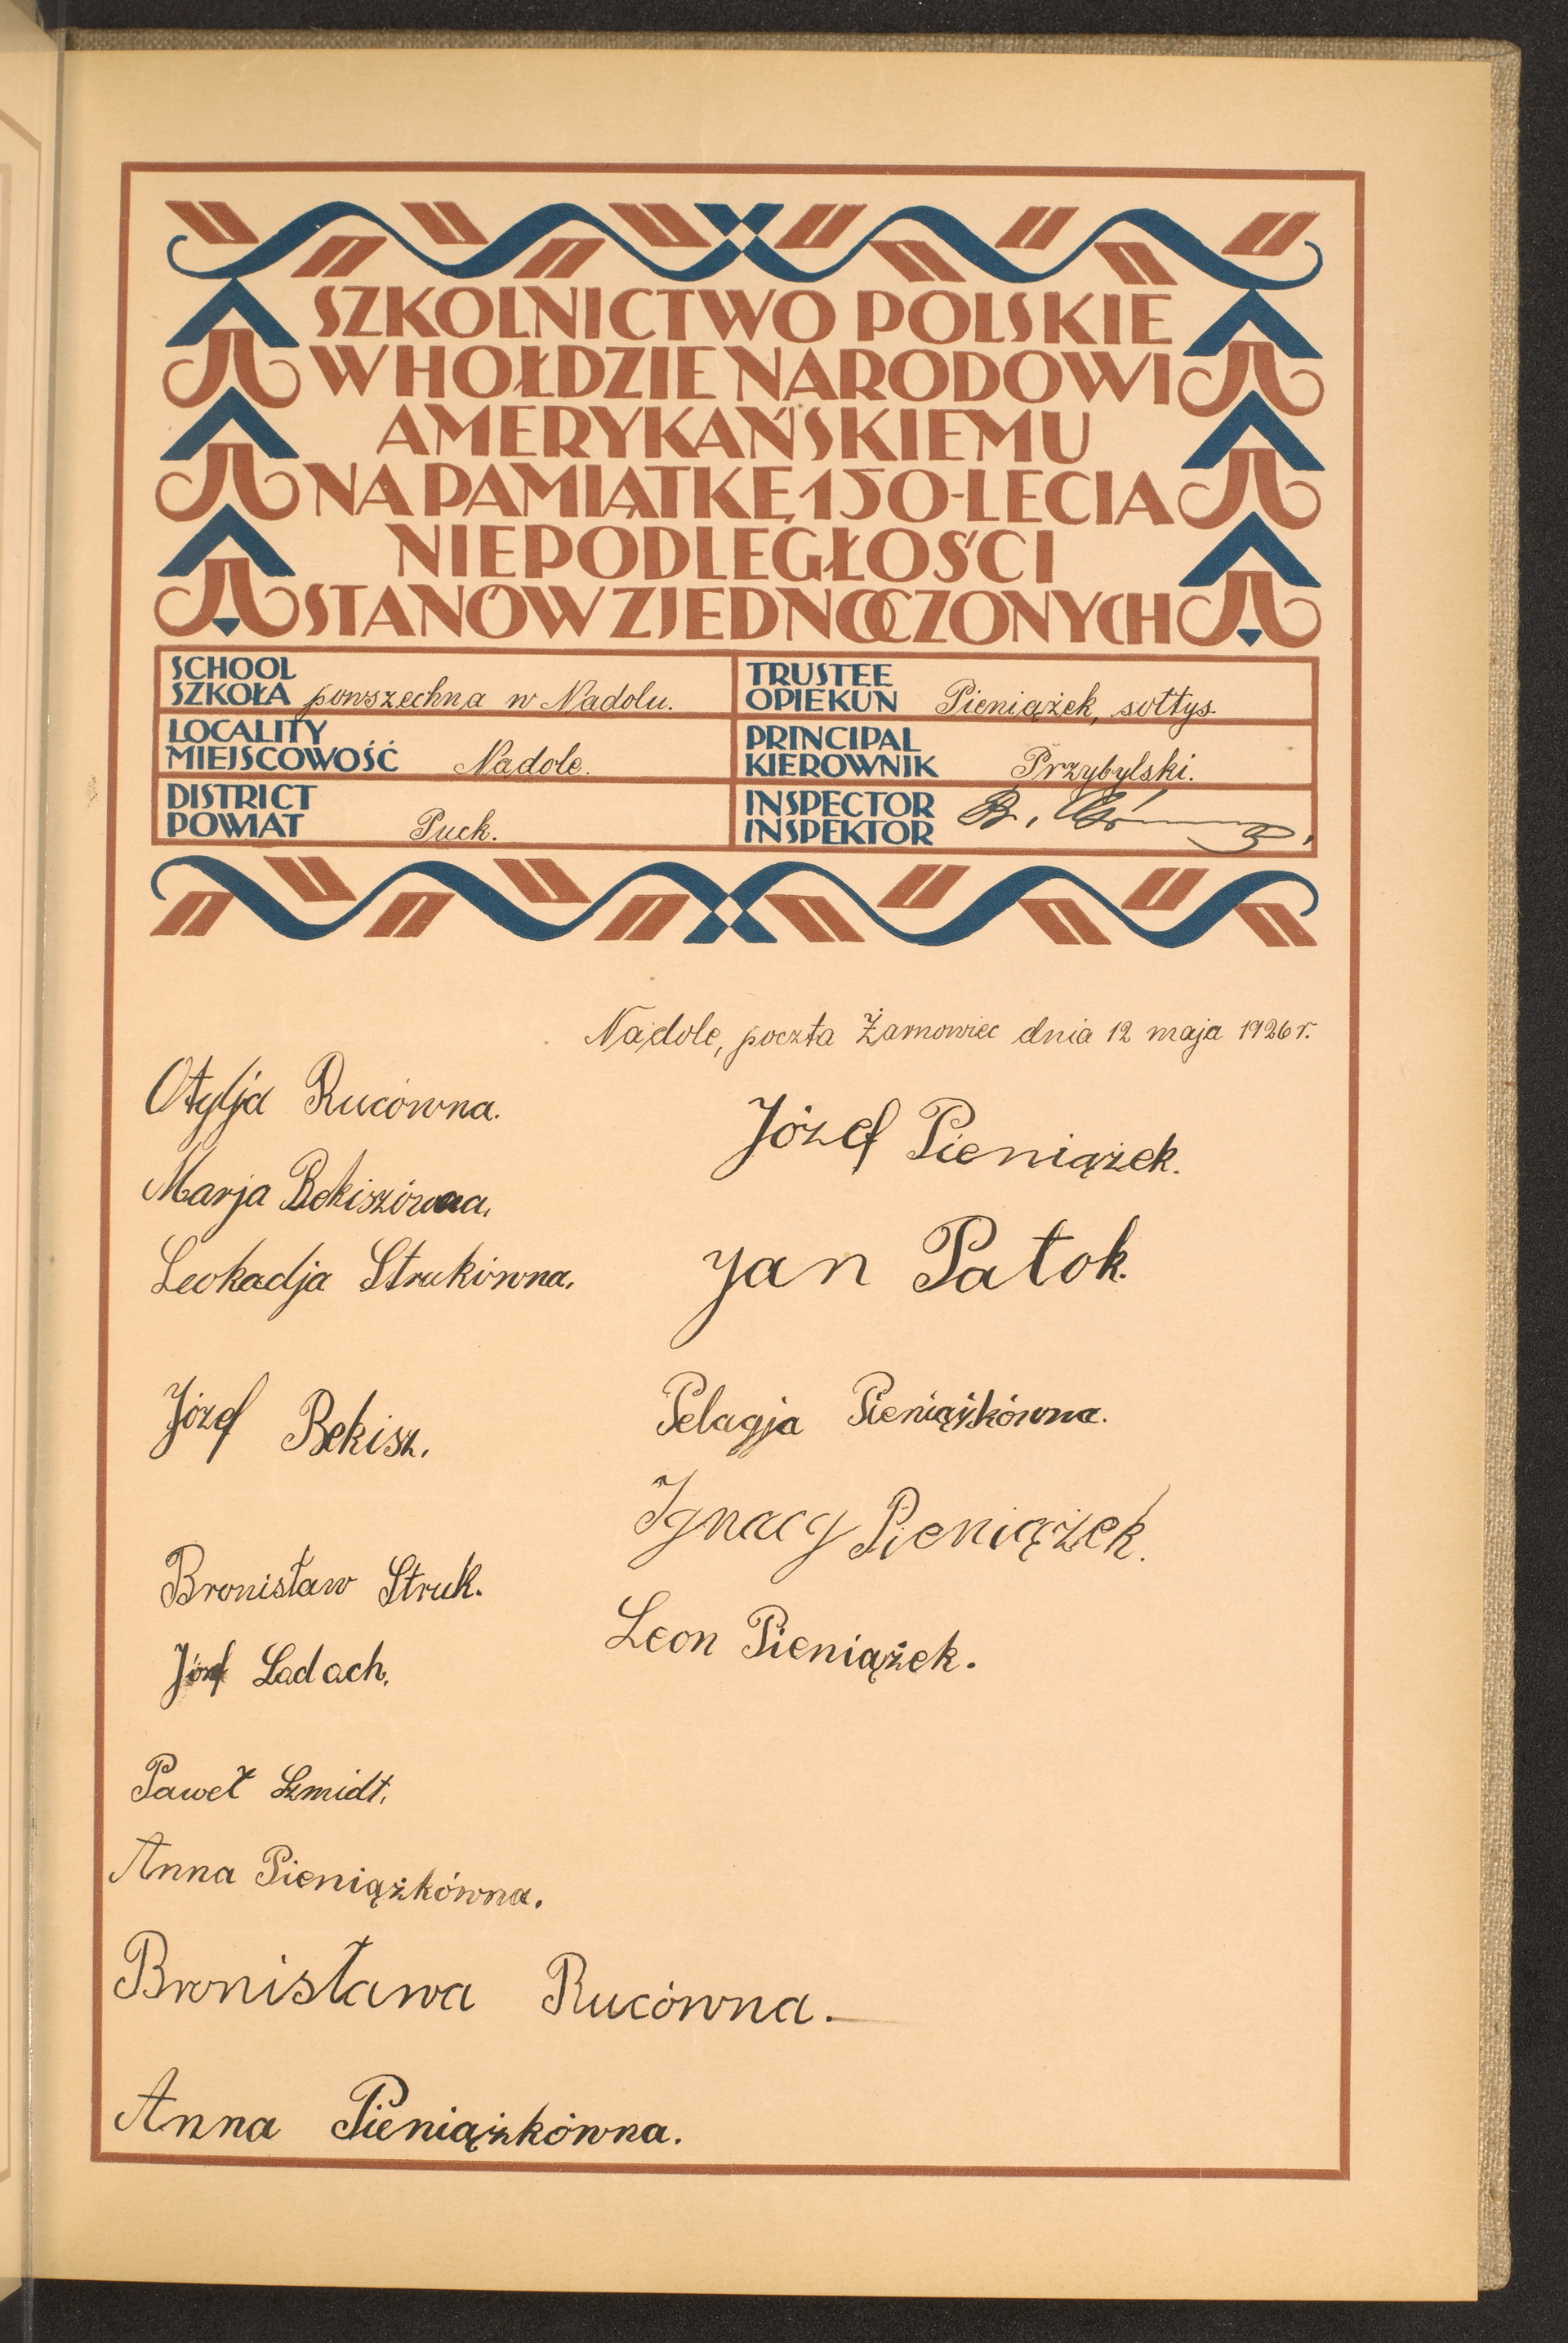 SZKOLNICTWO POLSKIE
W HOŁDZIE NARODOWI
AMERYKAŃSKIEMU
NA PAMIĄTKĘ 150-LECIA
NIEPODLEGŁOŚCI
STANÓW ZJEDNOCZONYCH
SCHOOL
SZKOŁA powszechna w Nadolu.
LOCALITY
MIEJSCOWOŚĆ Nadole.
DISTRICT
POWIAT Puck.
TRUSTEE
OPIEKUN Pieniążek, sołtys.
PRINCIPAL
KIEROWNIK Przybylski.
INSPECTOR
INSPEKTOR B.
Nadole, poczta Żarnowiec dnia 12 maja 1926 r.
Otylja Rucówna.
Marja Bekiszówna.
Leokadja Strukówna.
Józef Bekisz.
Bronisław Struk.
Józef Ladach.
Paweł Szmidt.
Anna Pieniążkówna.
Bronisława Rucówna.
Anna Pieniążkówna.
Józef Pieniążek.
Jan Patok.
Pelagja Pieniążkówna.
Ignacy Pieniążek.
Leon Pieniążek.